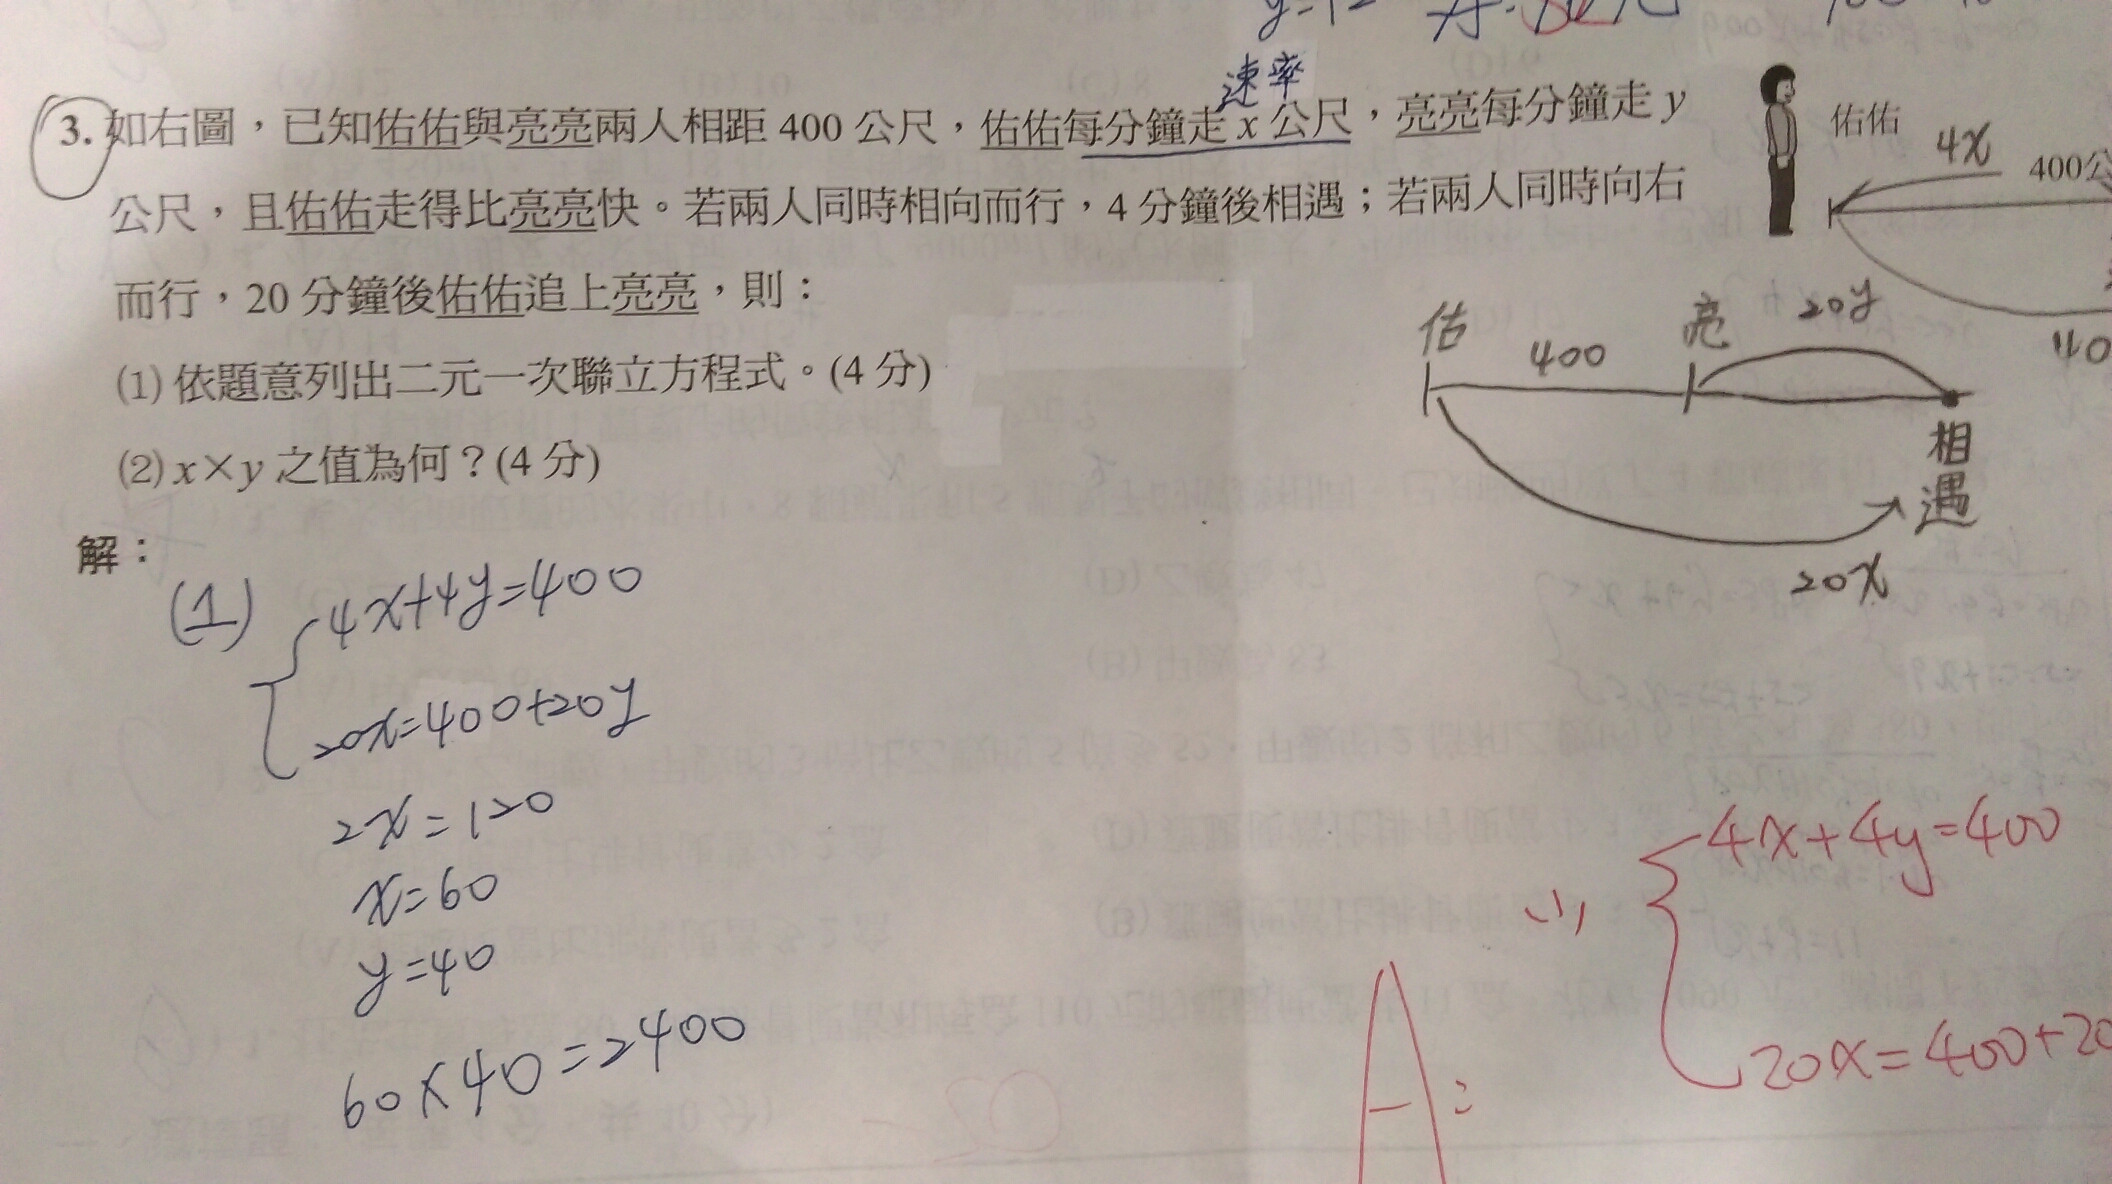 速率
3. 如右圖，已知佑佑與亮亮兩人相距 400 公尺，佑佑每分鐘走 x 公尺，亮亮每分鐘走 y
公尺，且佑佑走得比亮亮快。若兩人同時相向而行，4 分鐘後相遇；若兩人同時向右
而行，20 分鐘後佑佑追上亮亮，則：
(1) 依題意列出二元一次聯立方程式。(4 分)
(2) x×y 之值為何？(4 分)
佑佑
4x
400公
40
佑
400
亮
20y
相遇
20x
解：
(1) 4x+4y=400
20x=400+20y
2x=120
x=60
y=40
60×40=2400
A:
(1) 4x+4y=400
20x=400+20